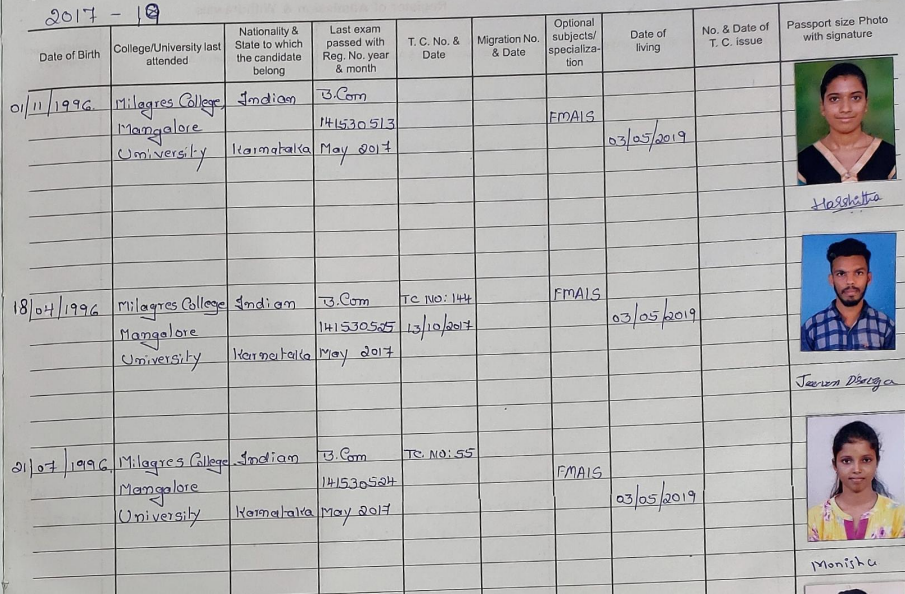 2017 - 19
Date of Birth
College/University last
attended
Nationality &
State to which
the candidate
belong
Last exam
passed with
Reg. No. year
& month
T. C. No. &
Date
Migration No.
& Date
Optional
subjects/
specializa-
tion
Date of
living
No. & Date of
T. C. issue
Passport size Photo
with signature
01/11/1996
Milagres College,
Mangalore
University
Indian
Karnataka
B.Com
141530513
May 2017
FMAIS
03/05/2019
Harshitha
18/04/1996
Milagres College
Mangalore
University
Indian
Karnataka
B.Com
141530525
May 2017
TC NO: 144
13/10/2017
FMAIS
03/05/2019
21/07/1996
Milagres College
Mangalore
University
Indian
Karnataka
B.Com
141530524
May 2017
TC. NO: 55
FMAIS
03/05/2019
Monisha